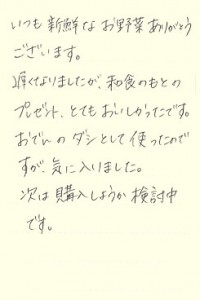 いつも新鮮なお野菜ありがとう
ございます。
遅くなりましたが、和食のもとの
プレゼント、とてもおいしかったです。
おでんのダシとして使ったので
すが、気に入りました。
次は購入しようか検討中
です。